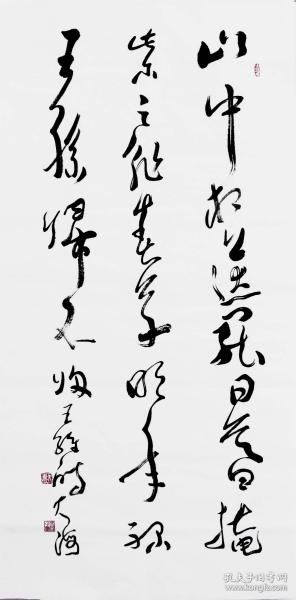 山中相送罷日暮掩
柴扉春草明年綠
王孫歸不歸 王維詩 大海
孔夫子旧书网